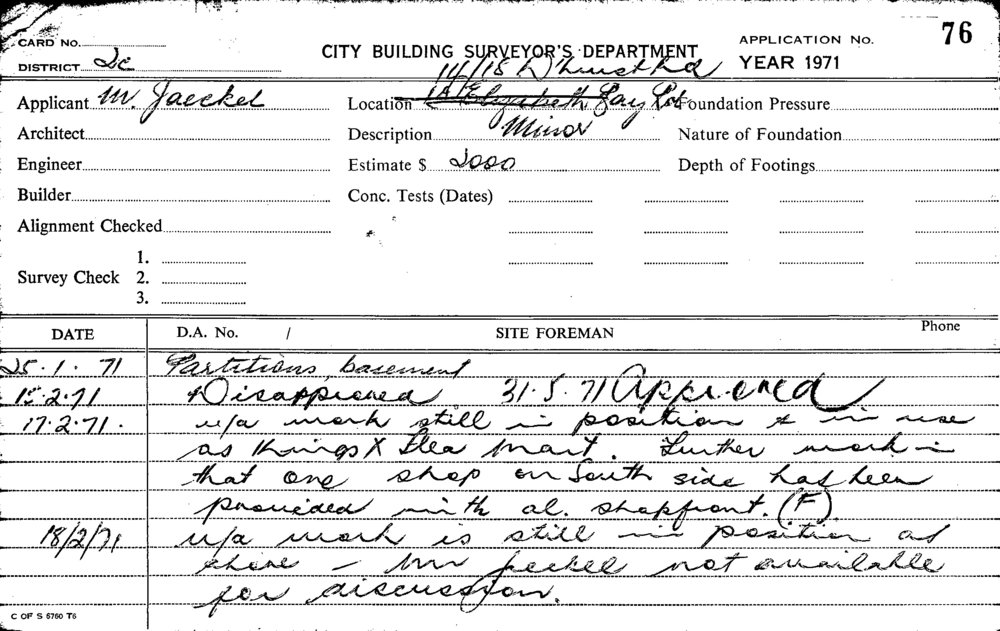 CARD No.
CITY BUILDING SURVEYOR'S DEPARTMENT
APPLICATION No. 76
DISTRICT 2c
YEAR 1971
14/18 D'hurst Rd
Applicant M. Jaeckel
Location 1A Elizabeth Bay Rd
Foundation Pressure
Architect
Description Minor
Nature of Foundation
Engineer
Estimate $ 2000
Depth of Footings
Builder
Conc. Tests (Dates)
Alignment Checked
1.
Survey Check 2.
3.
DATE D.A. No. / SITE FOREMAN Phone
25.1.71 Partitions, basement
15.2.71 Disapproved 31.5.71 Approved
17.2.71. u/a work still in position & in use
as Kings X Flea Mart. Further work in
that one shop on South side has been
provided with al. shopfront. (F)
18/2/71 u/a work is still in position as
above - Mr Jeckel not available
for discussion.
C OF S 5760 T6